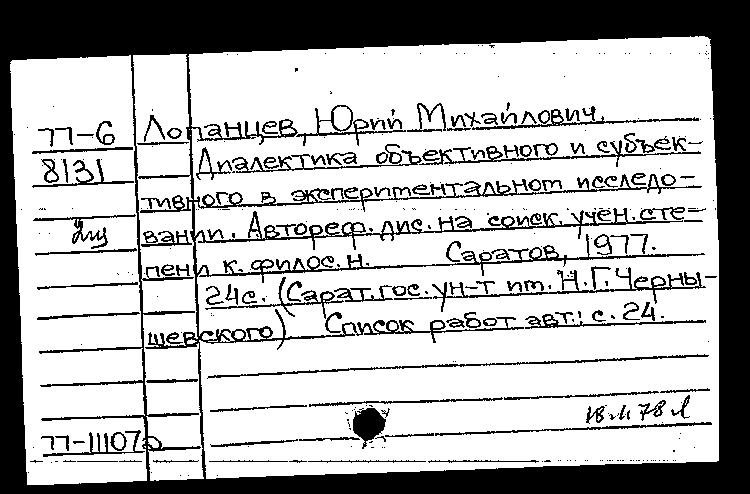 77-6 Лопанцев, Юрий Михайлович.
8131 Диалектика объективного и субъек-
тивного в экспериментальном исследо-
вании. Автореф. дис. на соиск. учен. сте-
пени к. филос. н. Саратов, 1977.
24с. (Сарат. гос. ун-т им. Н.Г. Черны-
шевского) Список работ авт.: с. 24.